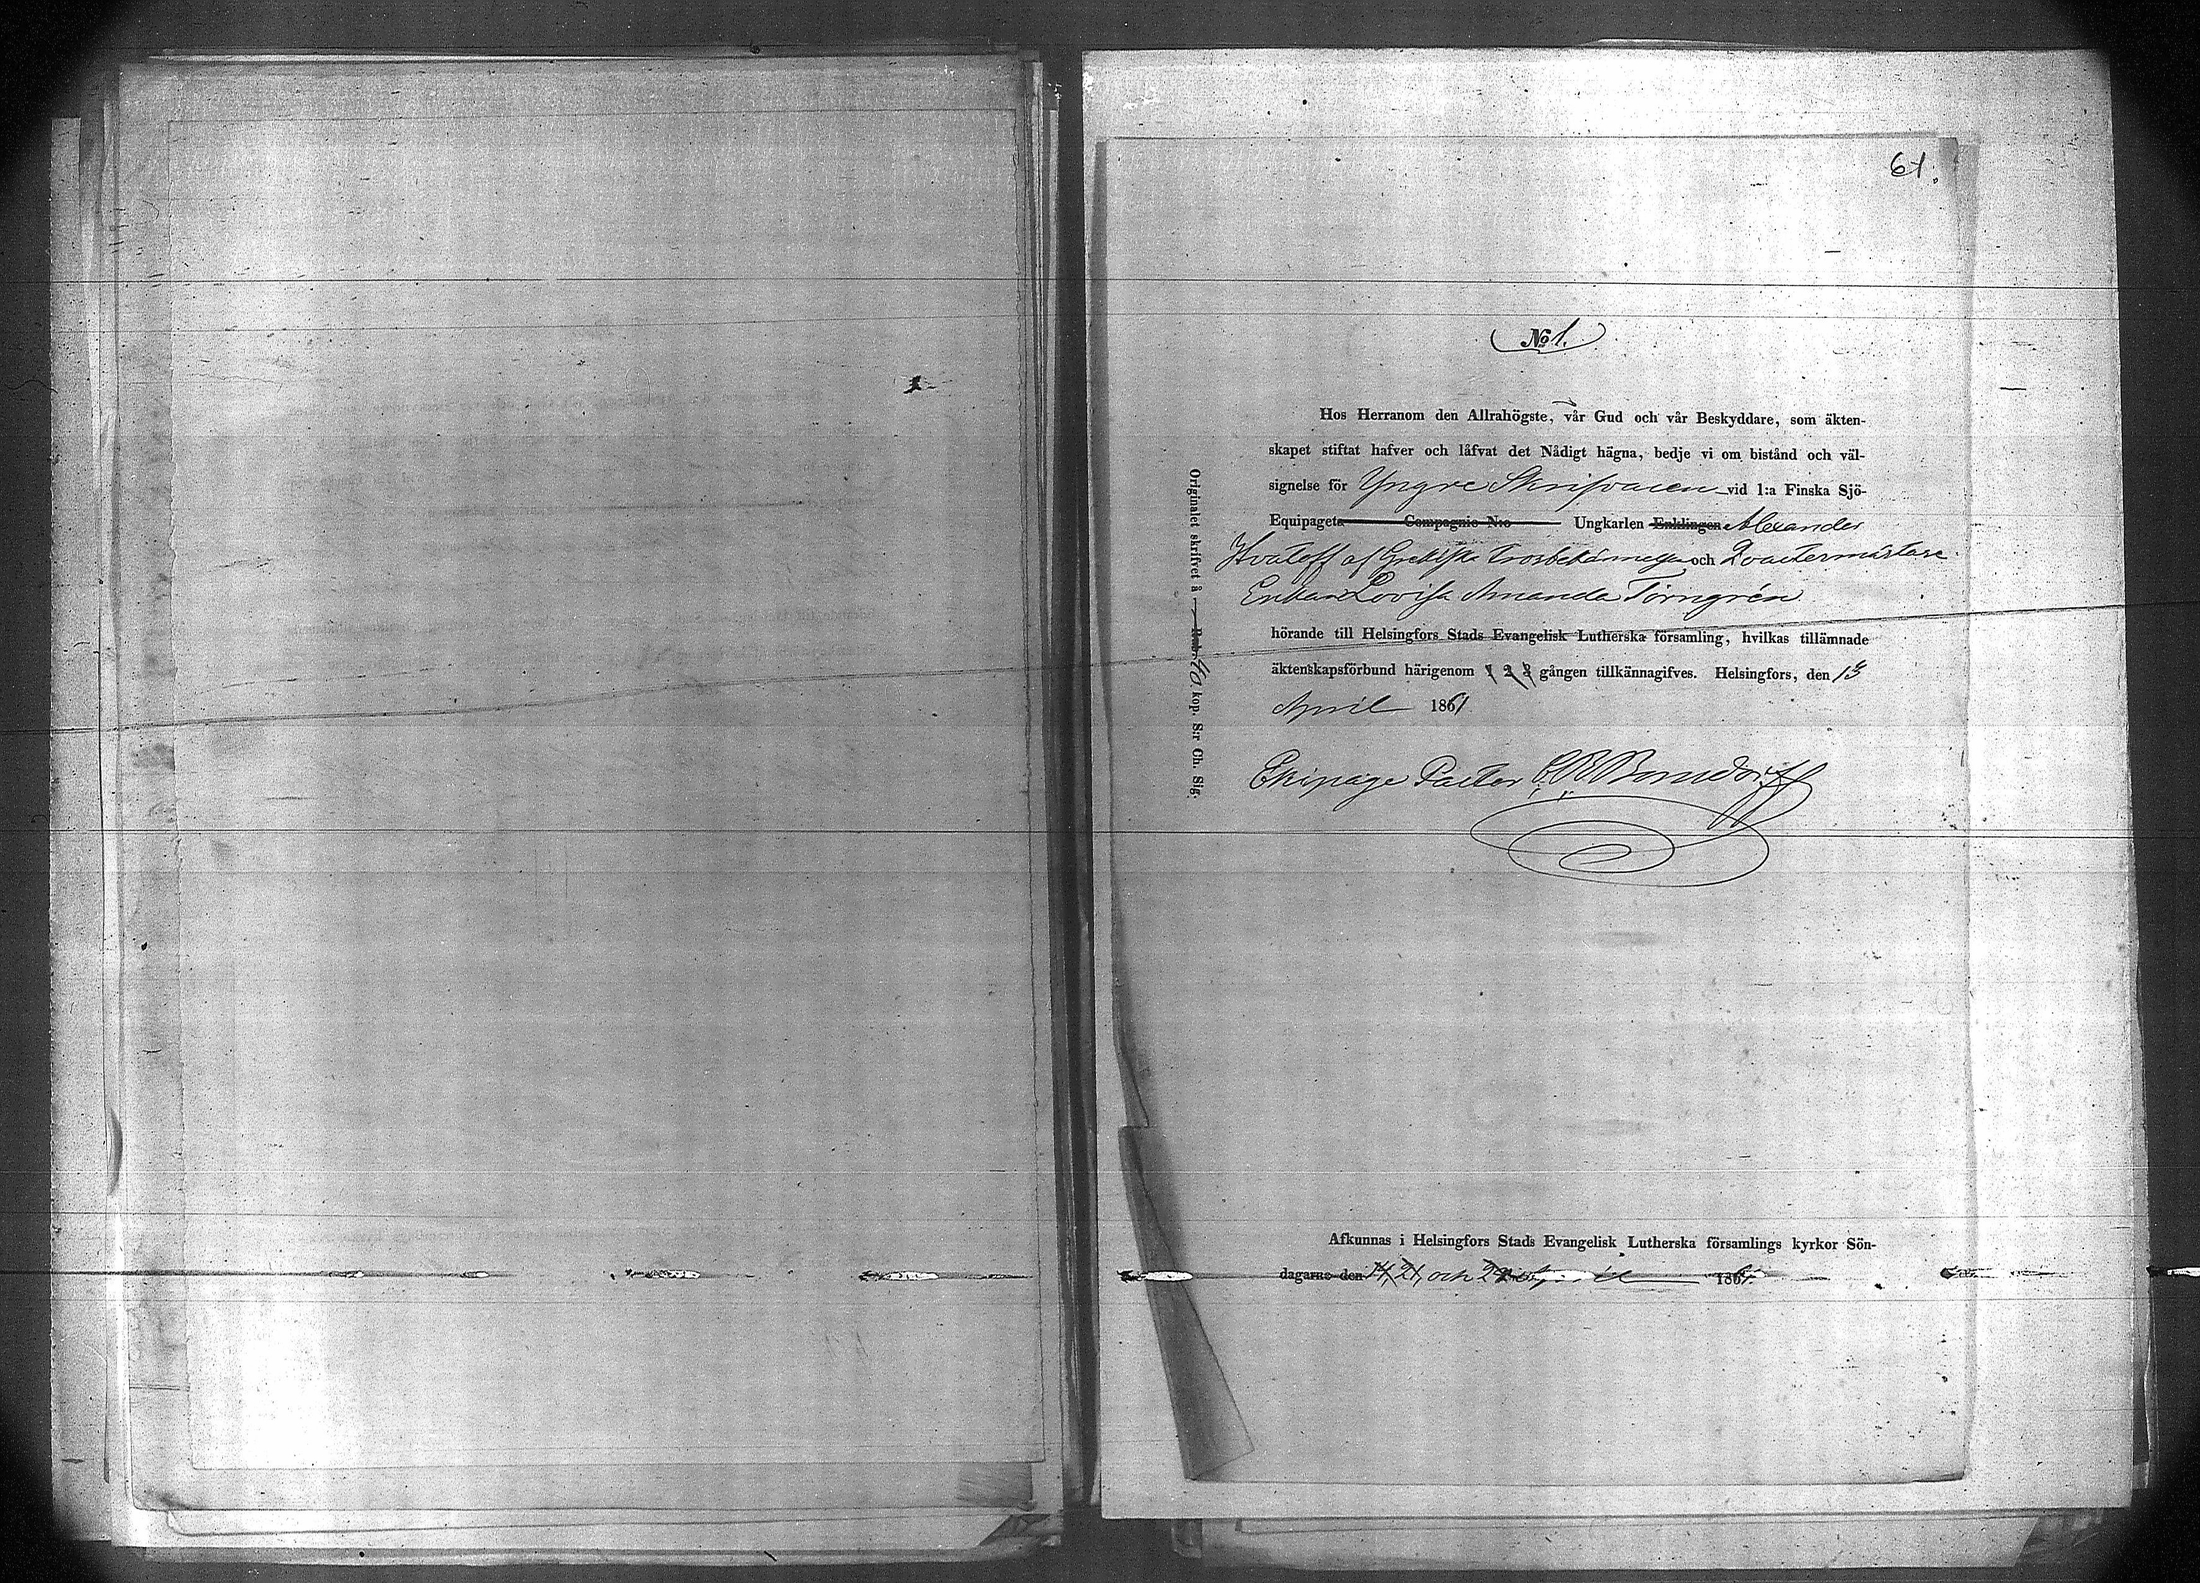 61.
No 1.
Hos Herranom den Allrahögste, vår Gud och vår Beskyddare, som äkten-
skapet stiftat hafver och låfvat det Nådigt hägna, bedje vi om bistånd och väl-
signelse för Yngre Skrifvaren vid 1:a Finska Sjö-
Equipagets Compagnie N:o Ungkarlen Enklingen Alexander
af Grekiska trosbekännelsen och Qvartermästare
Enkan Lovisa Amanda Törngrén
hörande till Helsingfors Stads Evangelisk Lutherska församling, hvilkas tillämnade
äktenskapsförbund härigenom 1 2 3 gången tillkännagifves. Helsingfors, den 13
April 1861
Ekipage Pastor
Originalet skrifvet å Rub. 40 kop. S:r Ch. Sig.
Afkunnas i Helsingfors Stads Evangelisk Lutherska församlings kyrkor Sön-
dagarne den 14, 21, och 28 April 1861.